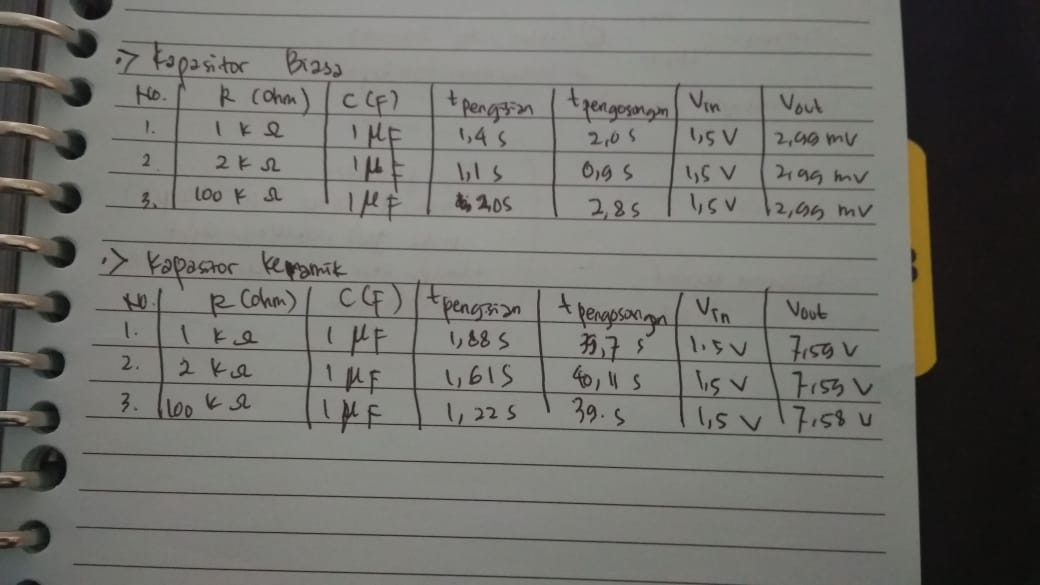 :> Kapasitor Biasa
No. R (Ohm) C (F) t pengisian t pengosongan Vin Vout
1. 1 K Ω 1 μF 1,4 s 2,0 s 1,5 V 2,99 mV
2. 2 K Ω 1 μF 1,1 s 0,9 s 1,5 V 2,99 mV
3. 100 K Ω 1 μF 2,0s 2,8 s 1,5 V 2,99 mV
:> Kapasitor Keramik
No. R (ohm) C (F) t pengisian t pengosongan Vin Vout
1. 1 K Ω 1 μF 1,88 s 39,7 s 1.5 V 7,59 V
2. 2 K Ω 1 μF 1,61 S 40,11 s 1,5 V 7,59 V
3. 100 K Ω 1 μF 1,22 s 39. s 1,5 V 7,58 V